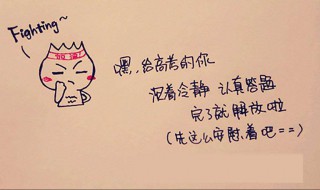 Fighting~
加油
嘿，给高考的你
沉着冷静 认真答题
完了就解放啦
(先这么安慰着吧==)